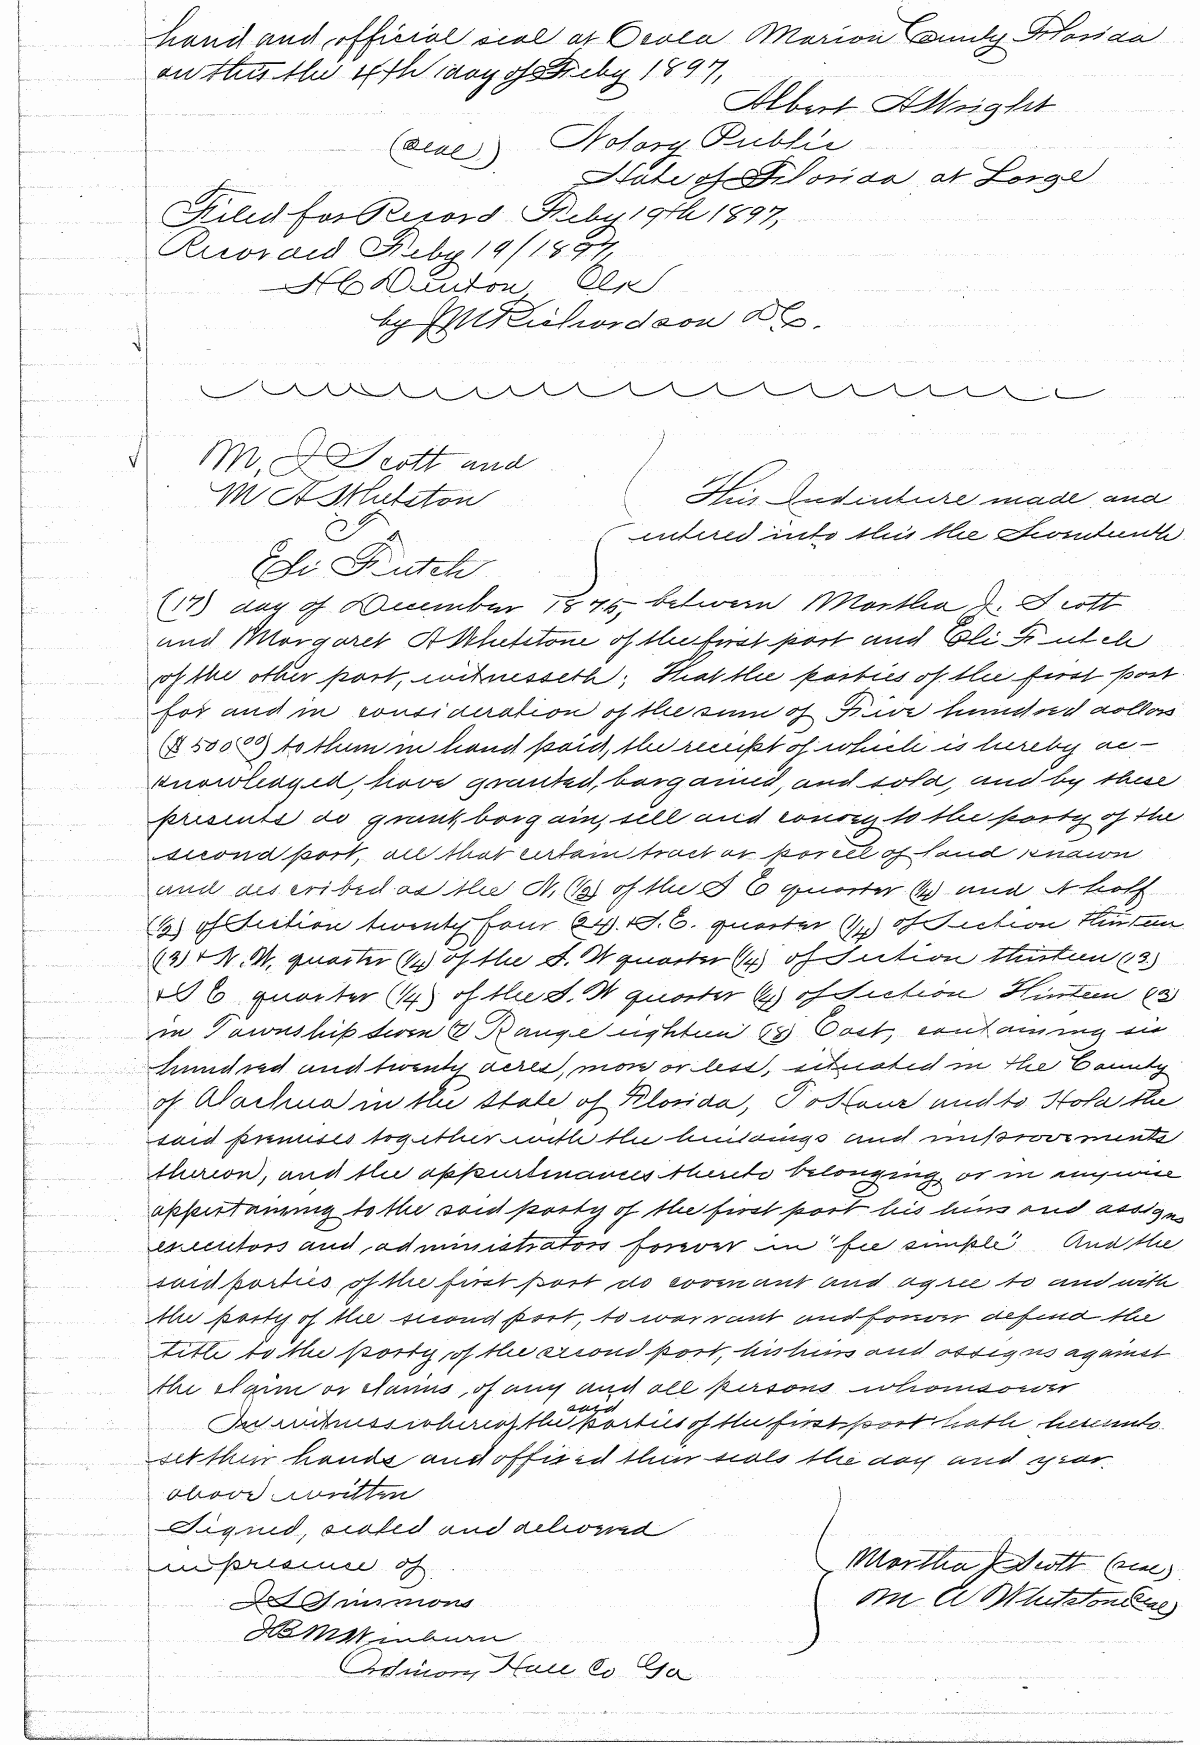 hand and official seal at Ocala Marion County Florida
on this the 4th day of Feby 1897,
Albert A Wright
(seal) Notary Public
State of Florida at Large
Filed for Record Feby 19th 1897,
Recorded Feby 19/1897,
H C Denton, Clk
by J M Richardson D C.
M, J Scott and
M A Whetston
To
Eli Futch
This Indenture made and
entered into this the Seventeenth
(17) day of December 1875, between Martha J. Scott
and Margaret A Whetstone of the first part and Eli Futch
of the other part, witnesseth; That the parties of the first part
for and in consideration of the sum of Five hundred dollars
($500 00) to them in hand paid, the receipt of which is hereby ac-
knowledged, have granted, bargained, and sold, and by these
presents do grant, bargain, sell and convey to the party of the
second part, all that certain tract or parcell of land known
and described as the N. (1/2) of the S E quarter (1/4) and N half
(1/2) of Section twenty four (24). + S. E. quarter (1/4) of Section thirteen
(13) + N. W. quarter (1/4) of the S. W quarter (1/4) of Section thirteen (13)
+ S E quarter (1/4) of the S. W quarter (1/4) of Section Thirteen (13)
in Township seven (7) Range eighteen (18) East, containing six
hundred and twenty acres, more or less, situated in the County
of Alachua in the State of Florida, To Have and to Hold the
said premises together with the buildings and improvements
thereon, and the appurtinances thereto belonging or in anywise
appertaining to the said party of the first part his heirs and assigns
executors and administrators forever in "fee simple" And the
said parties of the first part do covenant and agree to and with
the party of the second part, to warrant and forever defend the
title to the party of the second part, his heirs and assigns against
the claim or claims, of any and all persons whomsoever
In witness whereof the said parties of the first part hath hereunto
set their hands and affixed their seals the day and year
above written
Signed, sealed and delivered
in presence of
Martha J Scott (seal)
M A Whetstone (seal)
Simmons
Winburn
Ordinary Hall Co Ga